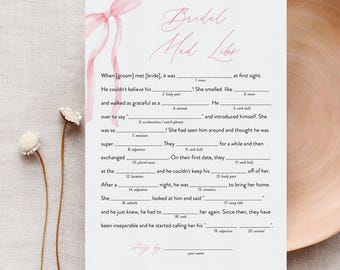 Bridal
Mad Libs
When [groom] met [bride], it was ____ at first sight.
1. noun
He couldn't believe his ____! She smelled like ____
2. body part 3. noun
and walked as graceful as a ____. He ____
4. animal 5. verb (ed)
over to say "____" and introduced himself. She
6. exclamation / catch phrase
was so ____! She had seen him around and thought he was
7. emotion
super ____. They ____ for a while and then
8. adjective 9. verb (ed)
exchanged ____. On their first date, they ____
10. plural noun 11. verb (ed)
at the ____ and he couldn't keep his ____ off of her.
12. location 13. body part
After a ____ night, he was ____ to bring her home.
14. adjective 15. emotion
She ____ looked at him and said "____"
16. adverb 17. song title
and he just knew, he had to ____ her again. Since then, they have
18. verb
been inseparable and he started calling her his "____".
19. adjective 20. animal
story by
your name